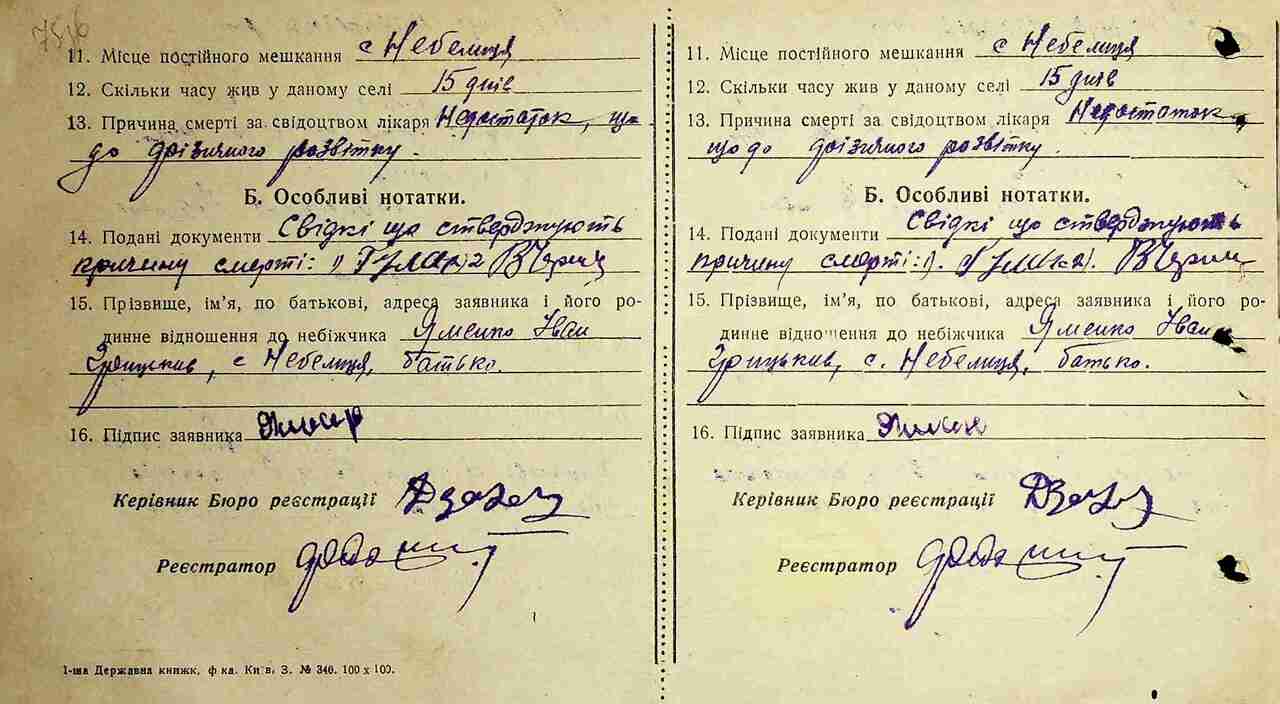 7516
11. Місце постійного мешкання с Небелиця
12. Скільки часу жив у даному селі 15 днів
13. Причина смерті за свідоцтвом лікаря Недостаток, що
до фізичного розвітку.
Б. Особливі нотатки.
14. Подані документи Свідкі що стверджують
причину смерті: 1) 2
15. Прізвище, ім'я, по батькові, адреса заявника і його ро-
динне відношення до небіжчика Яменко Іван
Грицьків, с Небелиця, батько.
16. Підпис заявника
Керівник Бюро реєстрації
Реєстратор
1-ша Державна книжк. ф-ка. Київ, З. № 340. 100 x 100.
11. Місце постійного мешкання с Небелиця
12. Скільки часу жив у даному селі 15 днів
13. Причина смерті за свідоцтвом лікаря Недостаток
що до фізичного розвітку.
Б. Особливі нотатки.
14. Подані документи Свідкі що стверджують
причину смерті: 1). 2).
15. Прізвище, ім'я, по батькові, адреса заявника і його ро-
динне відношення до небіжчика Яменко Іван
Грицьків, с. Небелиця, батько.
16. Підпис заявника
Керівник Бюро реєстрації
Реєстратор